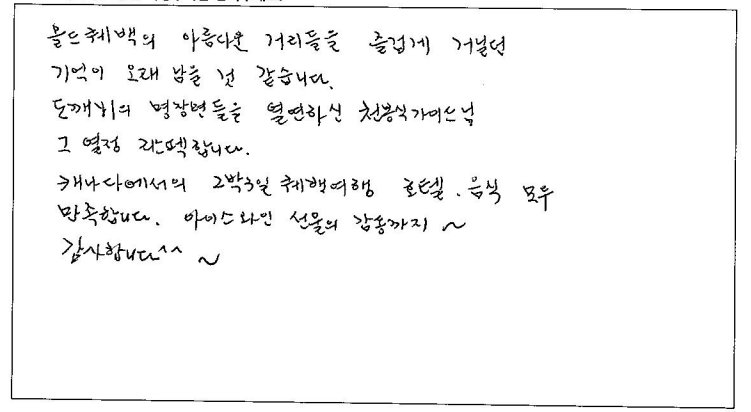 올드퀘백의 아름다운 거리들을 즐겁게 거닐던
기억이 오래 남을 것 같습니다.
도깨비의 명장면들을 열연하신 천봉식가이드님
그 열정 리스펙합니다.
캐나다에서의 2박3일 퀘백여행 호텔.음식 모두
만족합니다. 아이스와인 선물의 감동까지~
감사합니다^^ ~